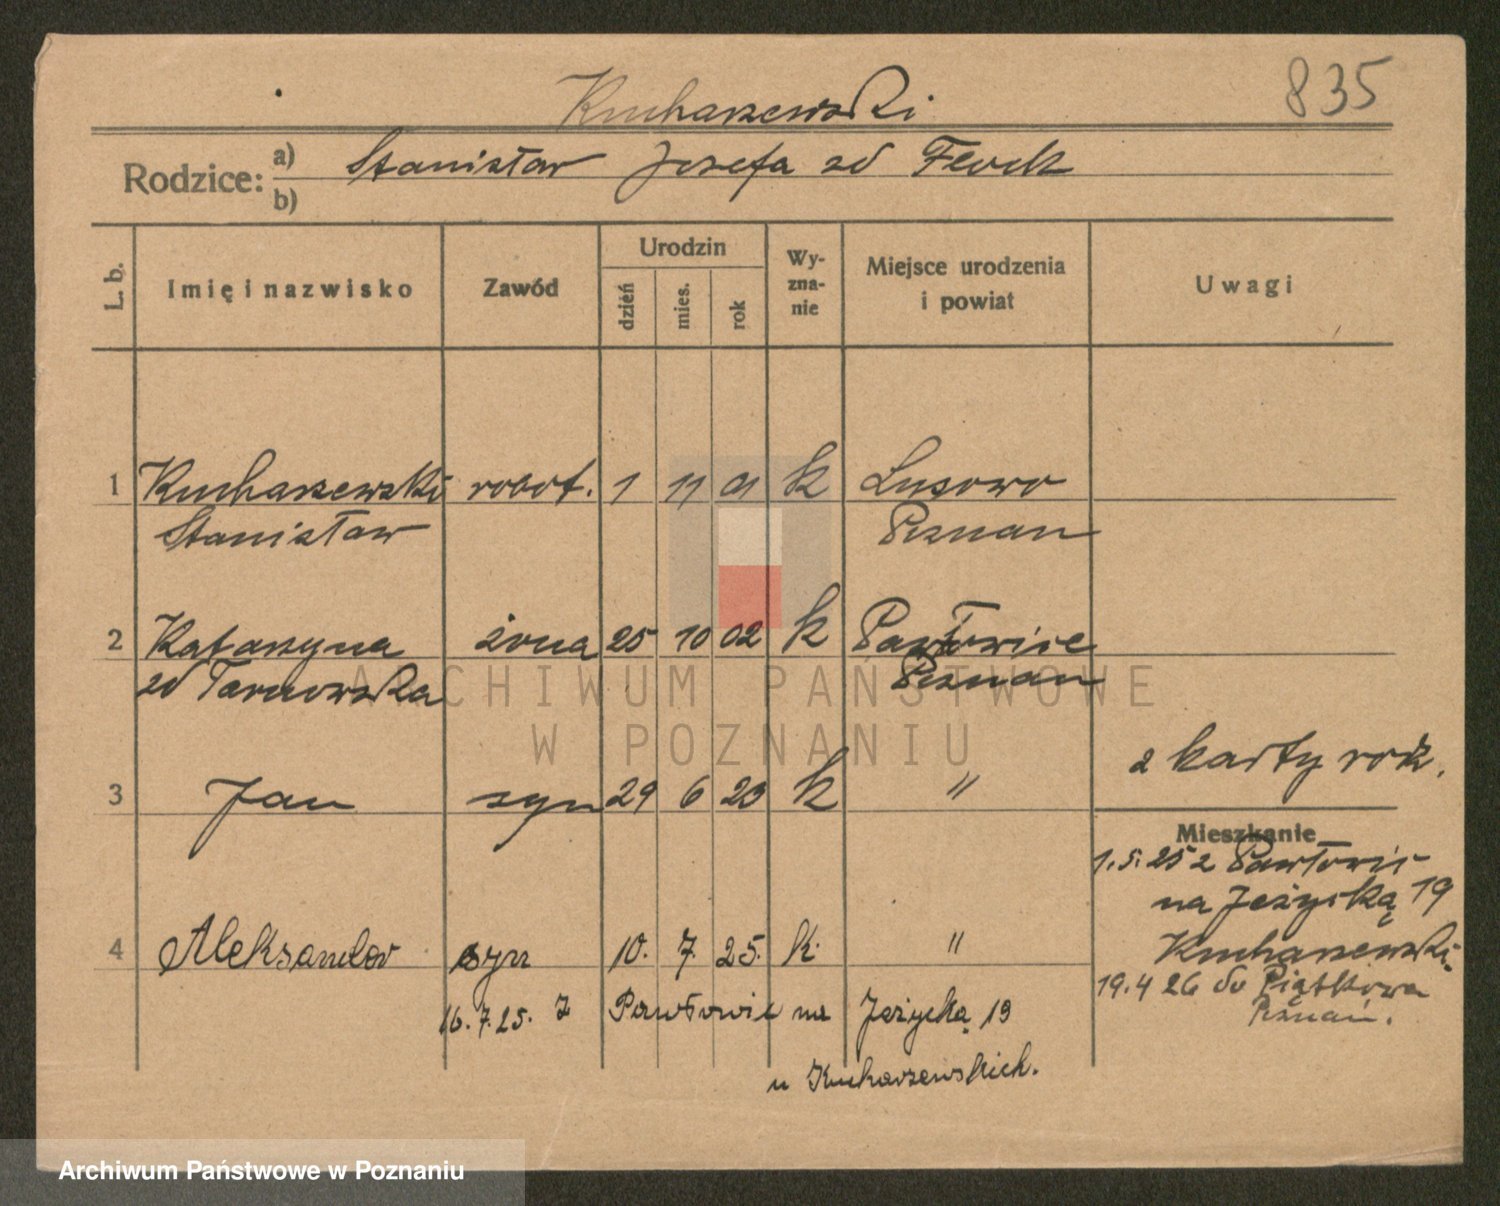 835
Kucharzewski
Rodzice: a) Stanisław Józefa zd Flock
b)
L. b. Imię i nazwisko Zawód Urodzin dzień mies. rok Wyznanie Miejsce urodzenia i powiat Uwagi
1 Kucharzewski robot. 1 11 01 k Lusowo
Stanisław Poznan
2 Katarzyna żona 25 10 02 k Pawłowice
zd Tarnowska Poznan
2 karty rodz.
3 Jan syn 29 6 23 k "
Mieszkanie
1.5.25 z Pawłowic
na Jeżycką 19
4 Aleksander syn 10. 7. 25. k. "
Kucharzewski.
19.4 26 do Piątkowa
Poznań.
16.7.25. Z Pawłowic na Jeżycką 19
u Kucharzewskich.
ARCHIWUM PAŃSTWOWE
W POZNANIU
Archiwum Państwowe w Poznaniu